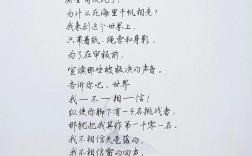 为什么死海里千帆相竞？
我来到这个世界上，
只带着纸、绳索和身影，
为了在审核前，
宣读那些被判决的声音。
告诉你吧，世界
我—不—相—信！
纵使你脚下有一千名挑战者，
那就把我算作第一千零一名。
我不相信天是蓝的，
我不相信雷的回声，